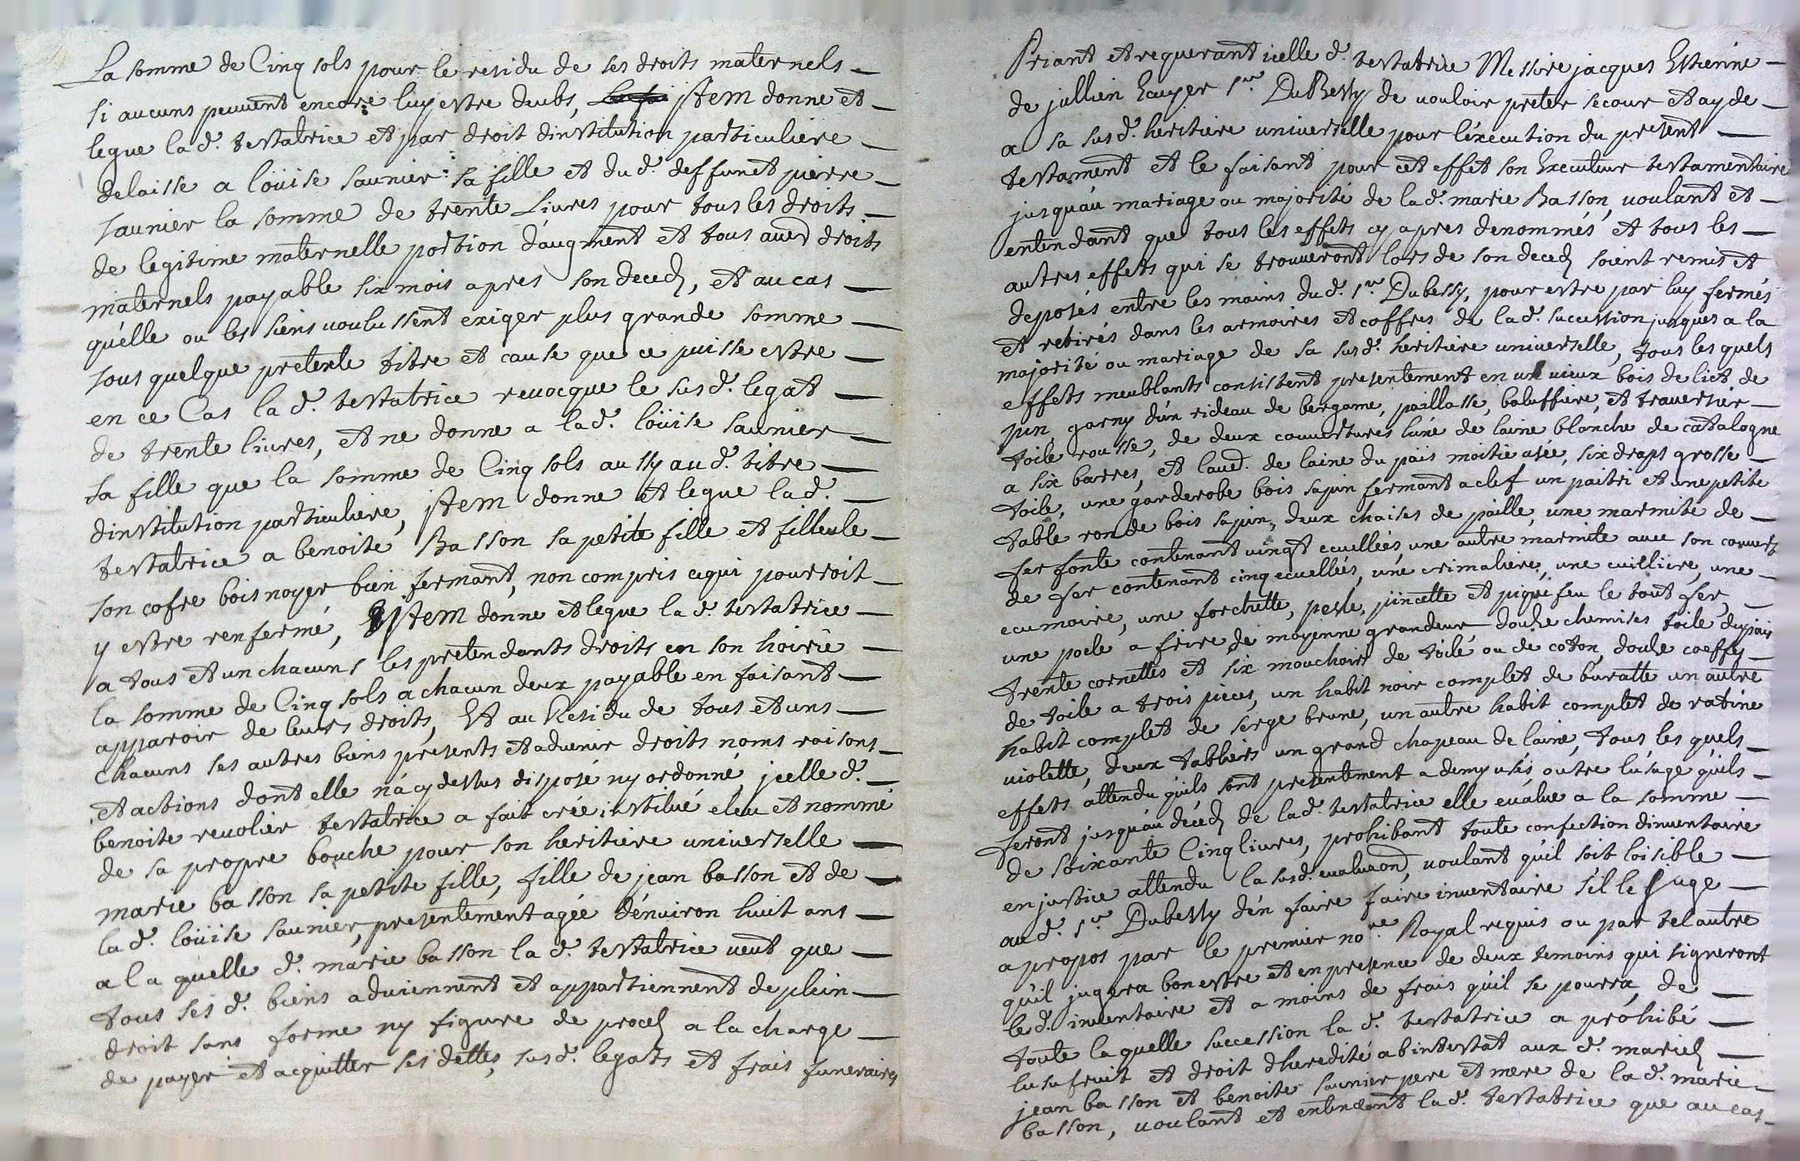 La somme de Cinq sols pour le residu de ses droits maternels
si aucuns peuuent encore luy estre deubs, jtem donne et
legue la d.e testatrice et par droit dinstitution particuliere
delaisse a loüise saunier sa fille et du d.t deffunct pierre
saunier la somme de trente Livres pour tous les droits
de legitime maternelle portion daugment et tous aues droits
maternels payable six mois apres son decedz, et au cas
qu'elle ou les siens voulussent exiger plus grande somme
sous quelque pretexte titre et cause que ce puisse estre
en ce Cas la d.e testatrice revocque le sus d.t legat
de trente livres, et ne donne a la d.e loüise saunier
sa fille que la somme de Cinq sols aussy au d.t titre
dinstitution particuliere, jtem donne et legue la d.e
testatrice a benoite Basson sa petite fille et filleule
son cofre bois noyer bien fermant, non compris ce qui pourroit
y estre renfermé, jtem donne et legue la d.e testatrice
a tous et un chacuns les pretendants droits en son hoirie
la somme de Cinq sols a chacun deux payable en faisant
apparoir de leurs droits, Et au Residu de tous et uns
chacuns ses autres biens presents et aduenir droits noms raisons
et actions dont elle n'a cy dessus disposé ny ordonné, jcelle d.e
benoite revolier testatrice a fait créé institué eleu et nommé
de sa propre bouche pour son heritiere universelle
marie basson sa petite fille, fille de jean basson et de
la d.e loüise saunier, presentement agée d'enuiron huit ans
a la quelle d.e marie basson la d.e testatrice ueut que
tous ses d.s biens aduiennent et appartiennent de plein
droit sans forme ny figure de procez a la charge
de payer et acquitter ses dettes, sus d.s legats et frais funeraires
Priant et requerant icelle d.e testatrice Messire jacques Estienne
de jullien Ecuyer s.r DuBessy de uouloir preter secour et ayde
a sa sus d.e heritiere universelle pour l'execution du present
testament et le faisant pour cet effet son Executeur testamentaire
jusqu'au mariage ou majorité de la d.e marie Basson, uoulant et
entendant que tous les effets cy apres denommés et tous les
autres effets qui se trouueront lors de son decedz soient remis et
deposés entre les mains du d. s.r Dubessy, pour estre par luy fermés
et retirés dans les armoires et coffres de la d.e succession jusques a la
majorité ou mariage de sa sus d.e heritiere universelle, tous les quels
effets meublants consistent presentement en un vieux bois de lict de
pin garny d'un rideau de bergame, paillasse, baluffiere, et trauersier
toile rousse, de deux couuertures lune de laine blanche de catalogne
a six barres, et laud. de laine du païs moitié usée, six draps grosse
toile, une garderobe bois sapin fermant a clef un paitri et une petite
table ronde bois sapin, deux chaises de paille, une marmite de
fer fonte contenant vingt ecuellées une autre marmite auec son couuert
de fer contenant cinq ecuellées, une crimaliere, une cuilliere, une
ecumoire, une forchette, pesle, pincette et pique feu le tout fer,
une poele a frire de moyenne grandeur douze chemises toile du païs
trente cornettes et six mouchoirs de toile ou de coton, douze coeffes
de toile a trois pieces, un habit noir complet de buratte un autre
habit complet de serge brune, un autre habit complet de ratine
violette, deux tabliers un grand chapeau de laine, tous les quels
effets attendu qu'ils sont presentement a demy usés outre l'usage qu'ils
seront jusqu'au décedz de la d.e testatrice elle evalue a la somme
de soixante Cinq livres, prohibant toute confection dinuentaire
en justice attendu la sus d. evaluaon, uoulant qu'il soit loisible
au d. s.r Dubessy d'en faire faire inuentaire s'il le juge
a propos par le premier no.re Royal requis ou par tel autre
qu'il jugera bon estre et en presence de deux temoins qui signeront
le d. inuentaire et a moins de frais qu'il se pourra, de
toute la quelle succession la d.e testatrice a prohibé
lusufruit et droit dheredité abintestat aux d. mariés
jean basson et benoite saunier pere et mere de la d.e marie
basson, uoulant et entendant la d.e testatrice que au cas